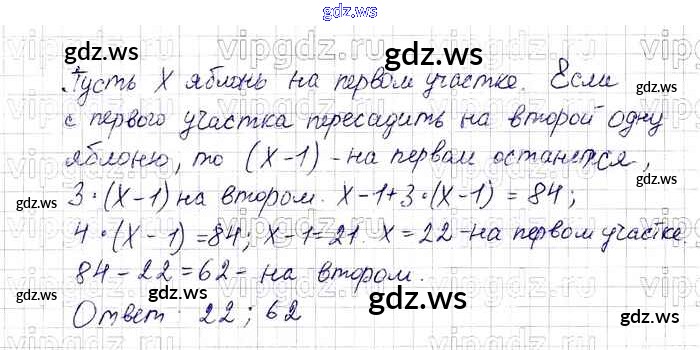 gdz.ws
gdz.ws gdz.ws
Пусть X яблонь на первом участке. Если
gdz.ws
с первого участка пересадить на второй одну
яблоню, то (X-1) - на первом останется,
gdz.ws gdz.ws gdz.ws
3·(X-1) на втором. X-1+3·(X-1) = 84;
4·(X-1)=84; X-1=21. X=22-на первом участке.
84-22=62- на втором.
gdz.ws gdz.ws gdz.ws
Ответ 22; 62